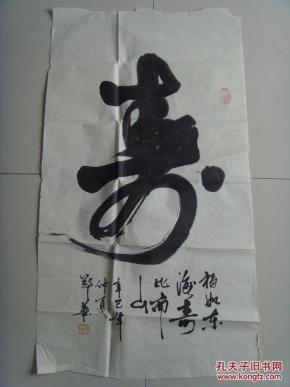 寿
福如东
海寿
比南
山
辛巳年
仲夏
郑华
孔夫子旧书网